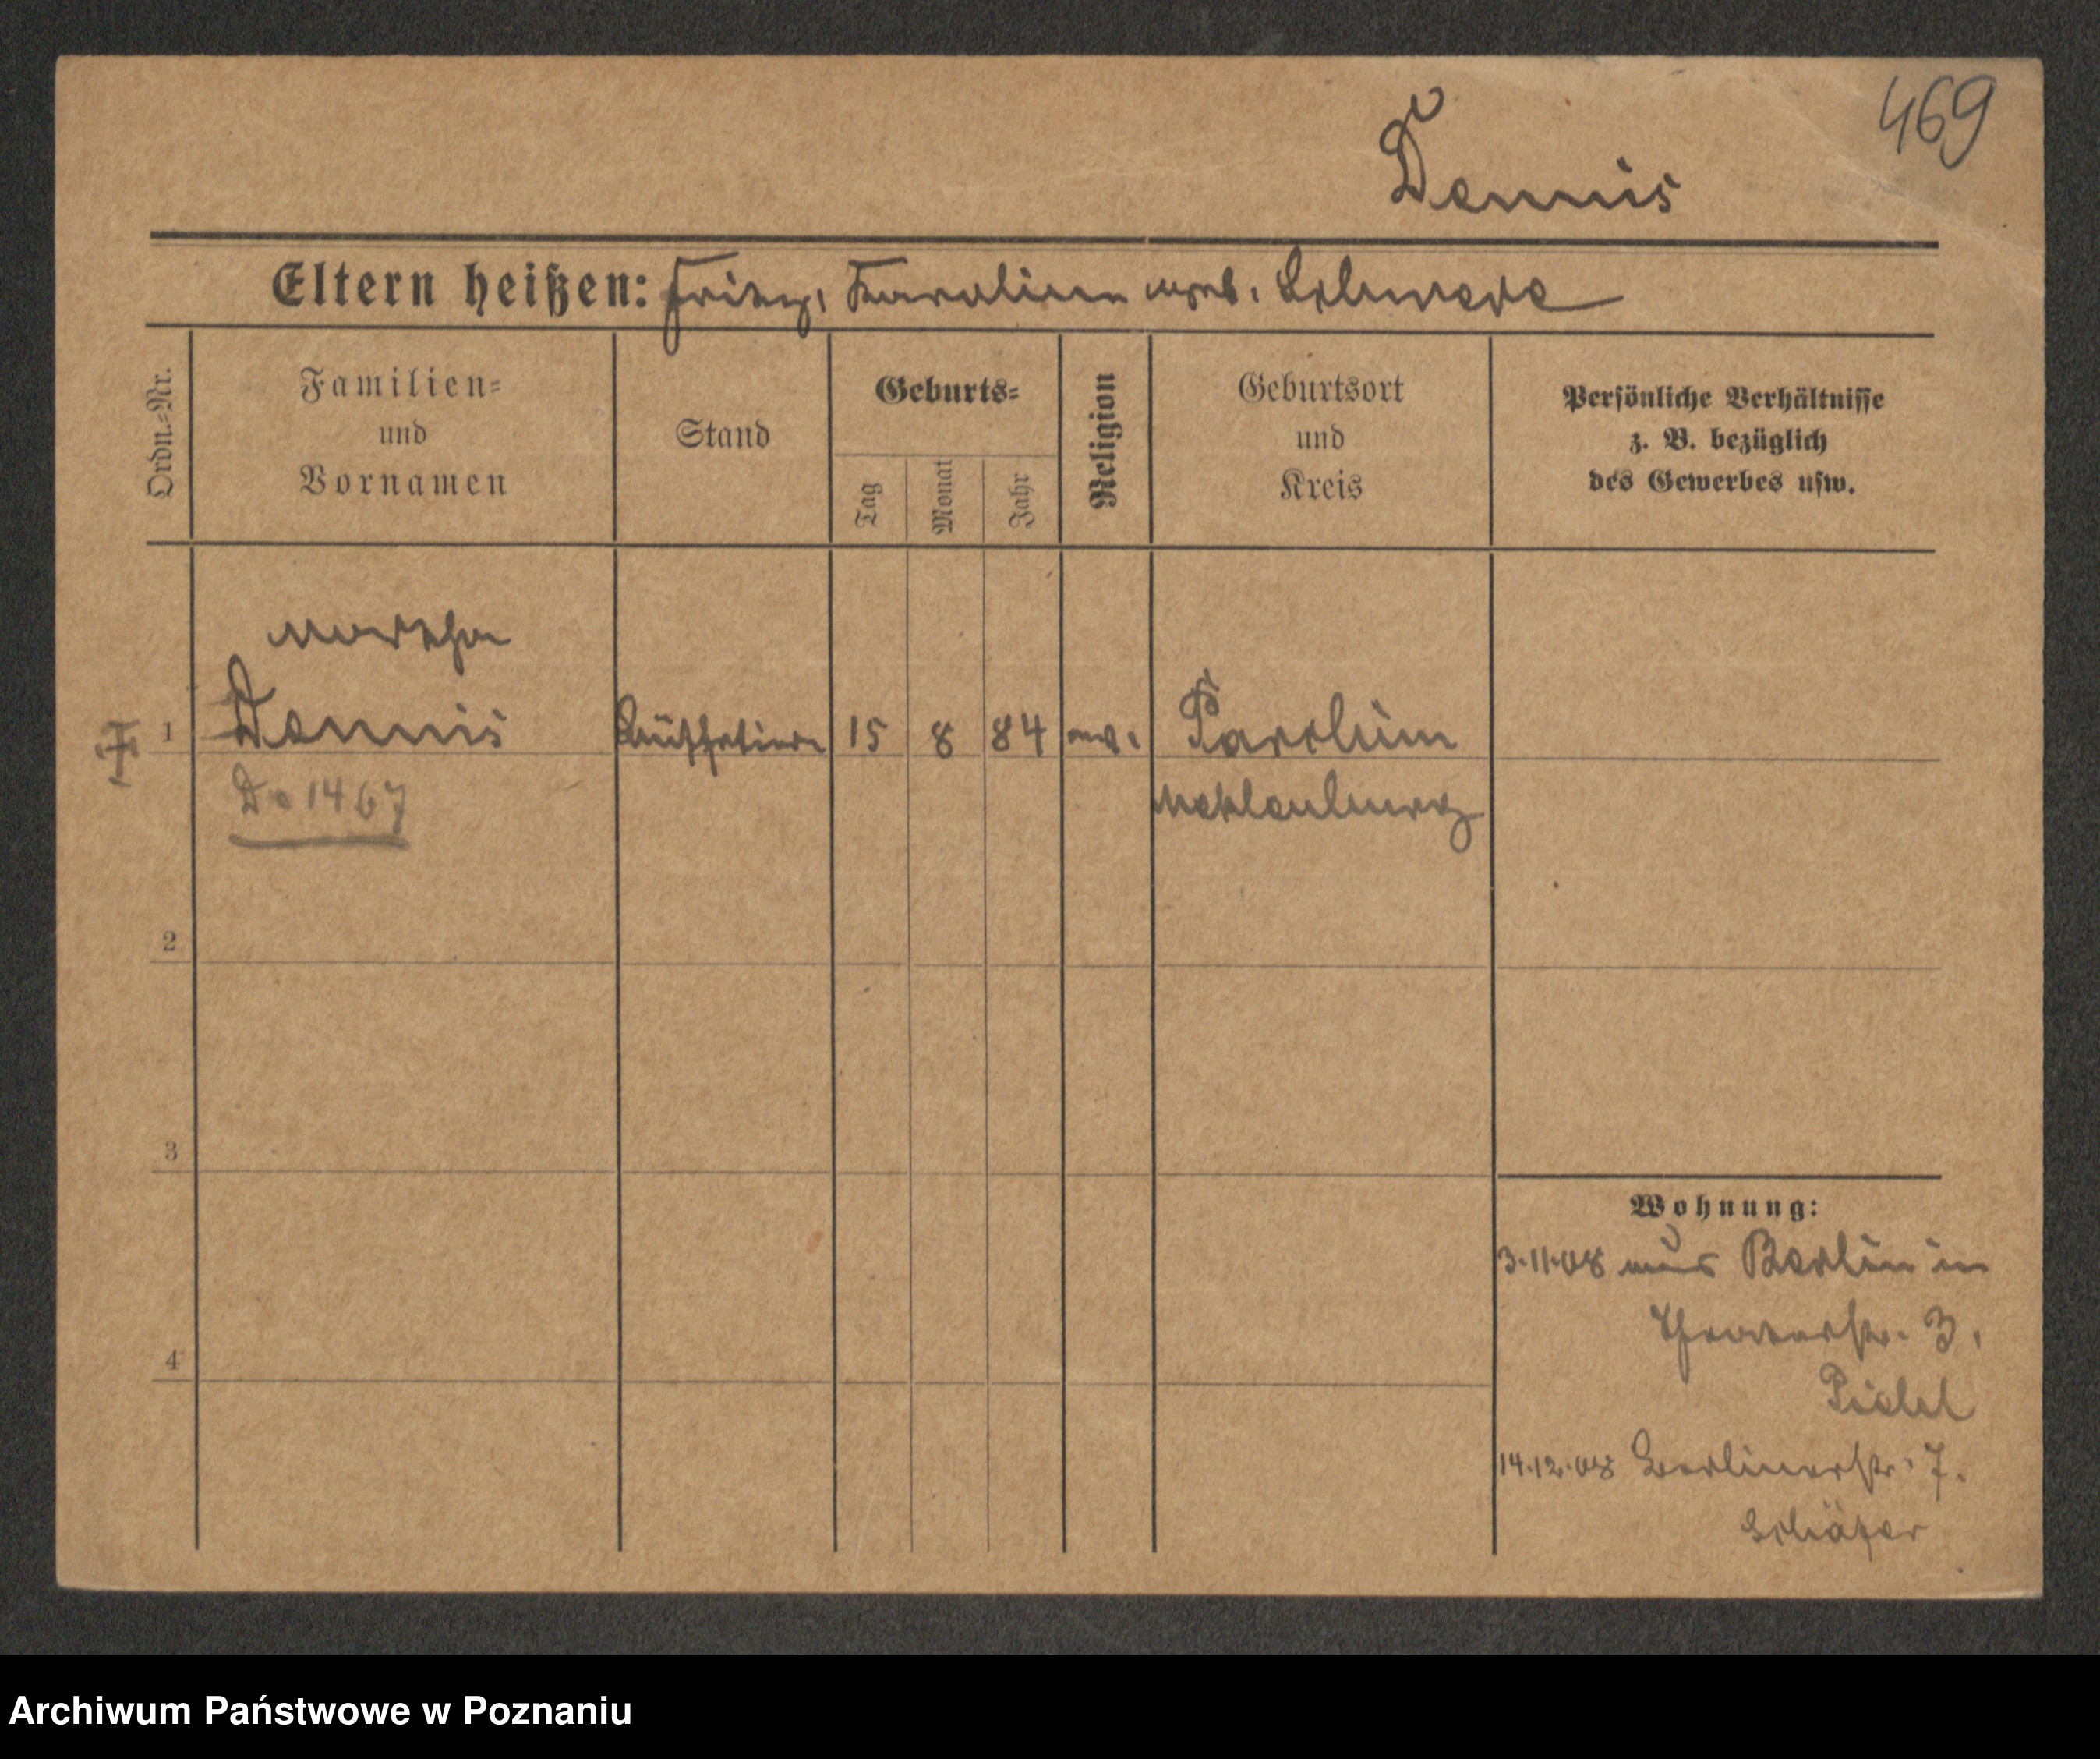 469
Dennis
Eltern heißen: Fritz, Karoline geb. Schwarz
Ordn.-Nr.
Familien-
und
Vornamen
Stand
Geburts-
Tag
Monat
Jahr
Religion
Geburtsort
und
Kreis
Persönliche Verhältnisse
z. B. bezüglich
des Gewerbes usw.
Martha
1 Dennis 15 8 84 ev. Parchim
D. 1467 Meklenburg
2
3
4
Wohnung:
3.11.08 aus Berlin in
Theaterstr. 3.
14.12.08 Berlinerstr. 7.
Schäfer
Archiwum Państwowe w Poznaniu